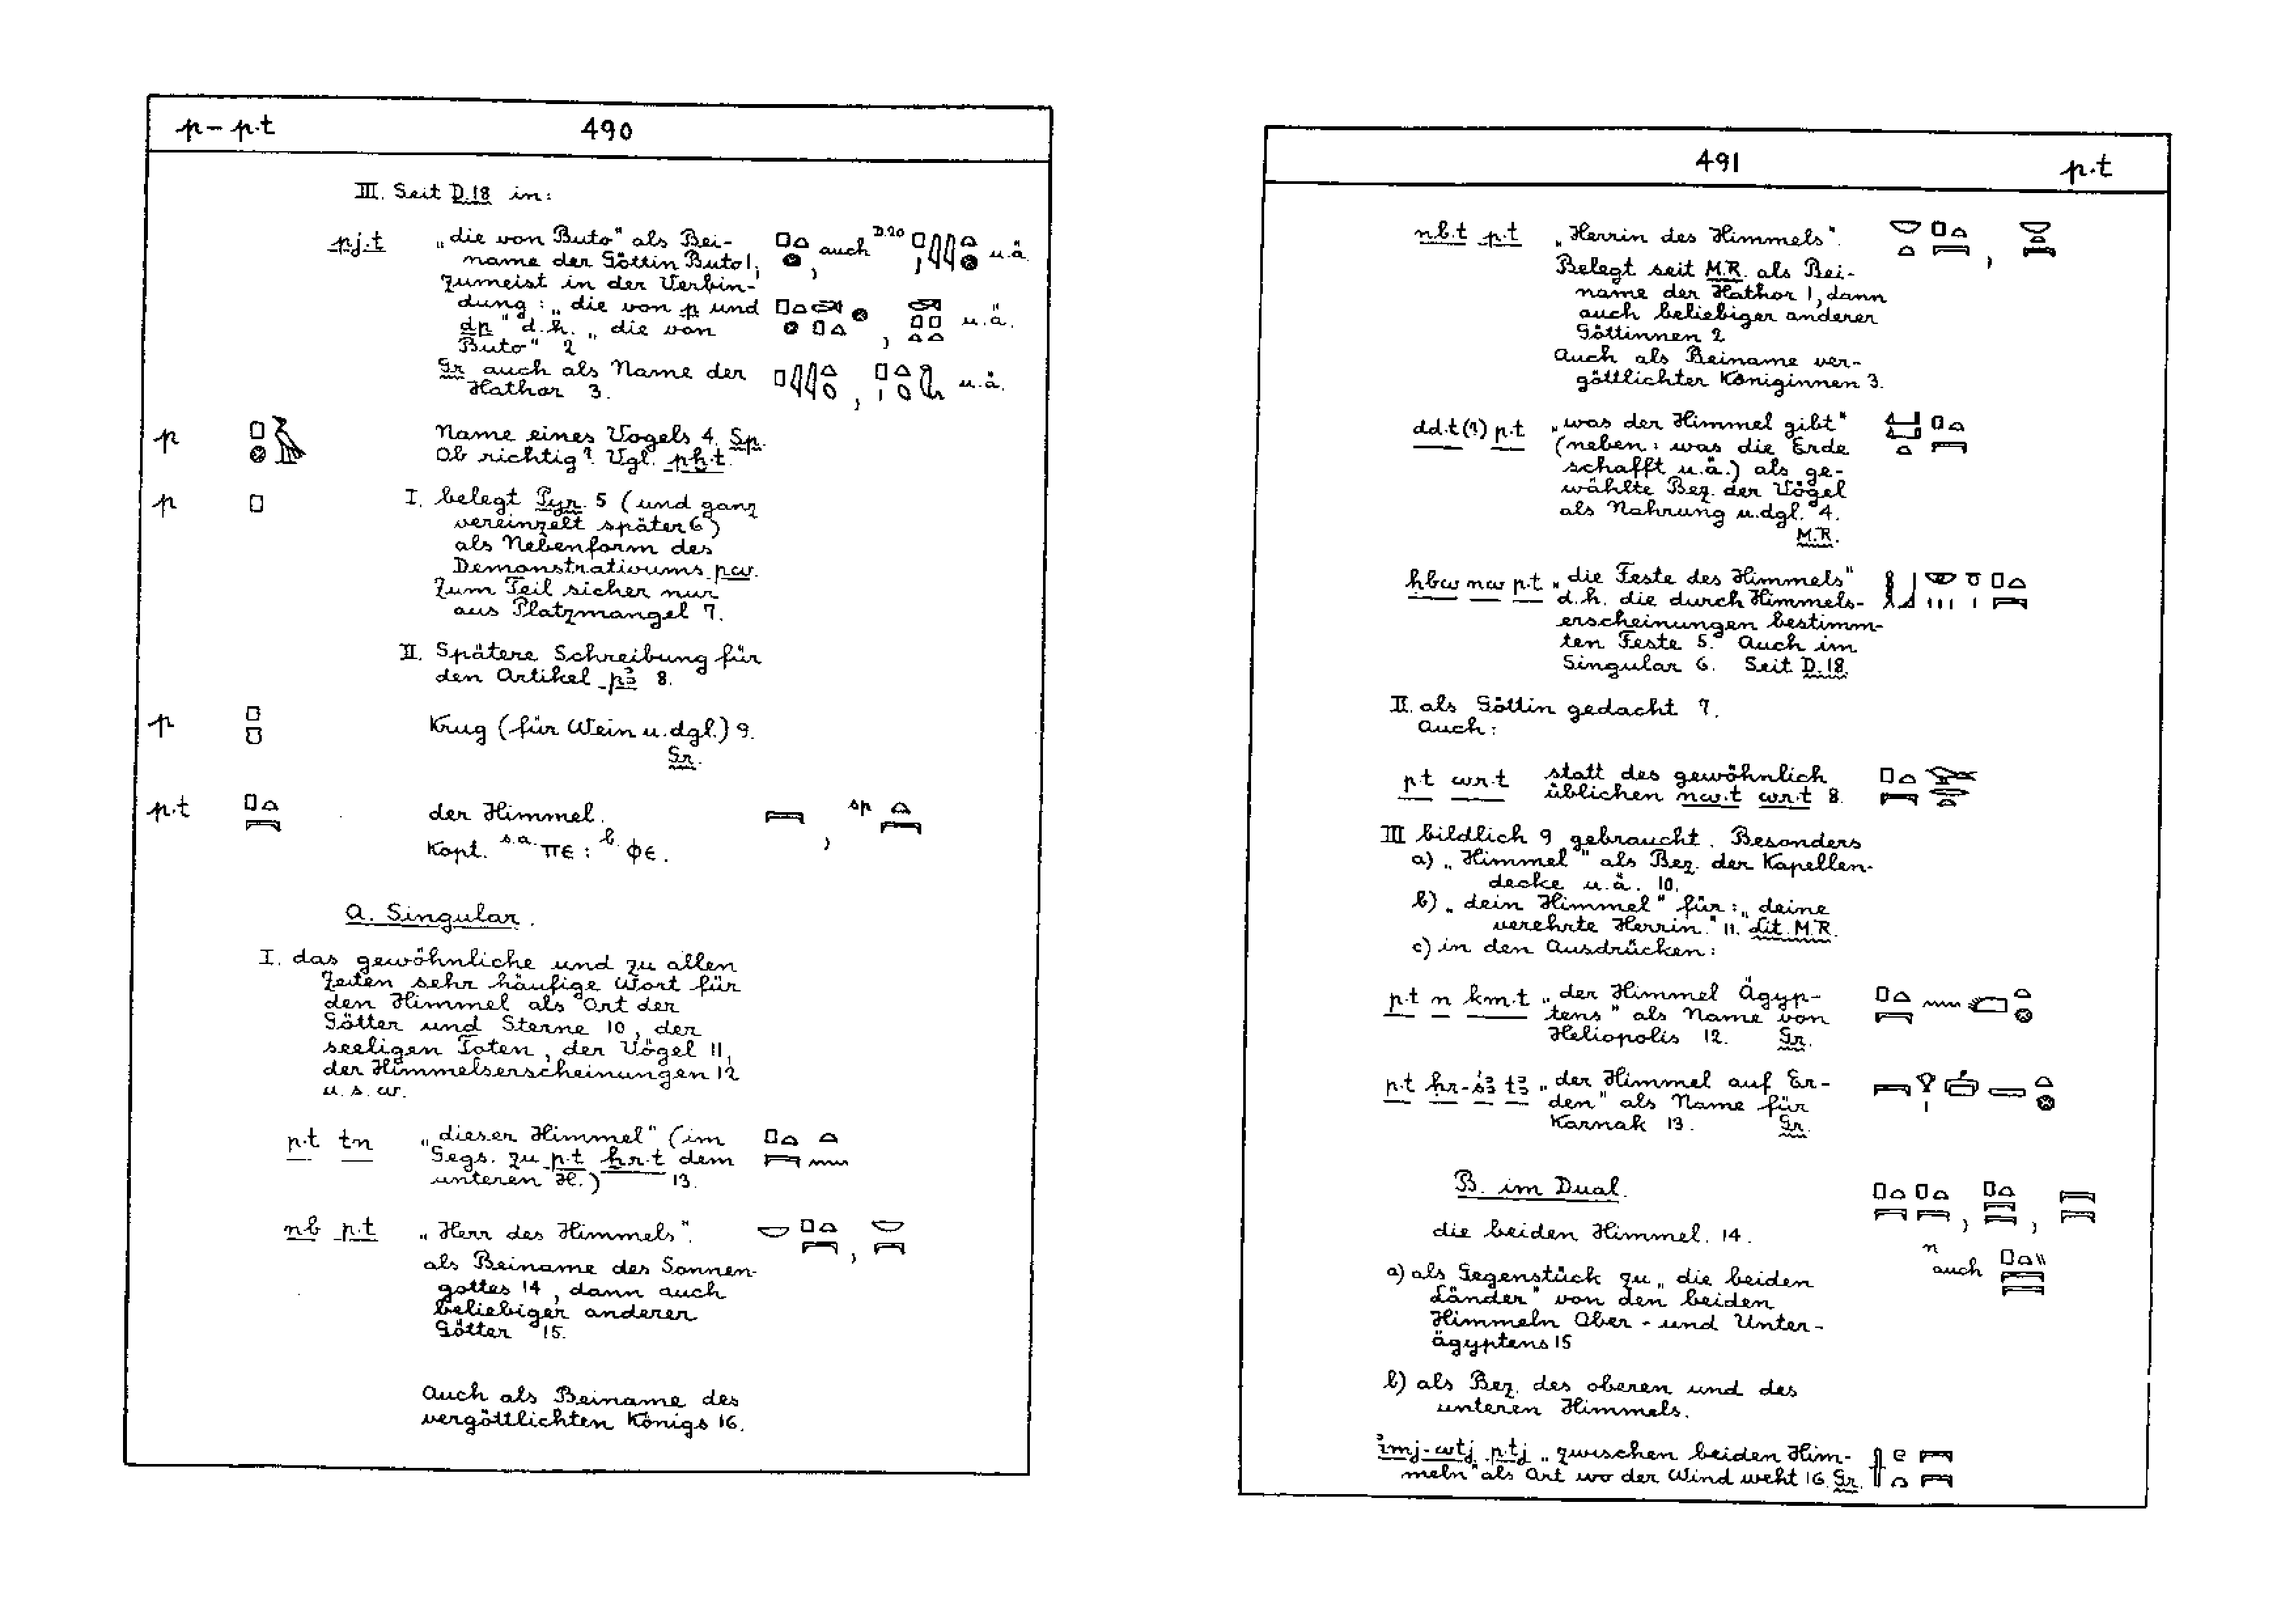 p – p.t 490
III. Seit D.18 in:
pj.t „die von Buto" als Bei- 𓊪𓏏𓊖, auch D.20 𓊪𓇋𓇋𓏏𓊖 u.ä.
name der Göttin Buto 1;
zumeist in der Verbin-
dung: „die von p und
dp" d.h. „die von u.ä.
Buto" 2
Gr auch als Name der u.ä.
Hathor 3.
p Name eines Vogels 4. Sp.
Ob richtig? Vgl. pḥ.t.
p 𓊪 I. belegt Pyr. 5 (und ganz
vereinzelt später 6)
als Nebenform des
Demonstrativums pw.
Zum Teil sicher nur
aus Platzmangel 7.
II. Spätere Schreibung für
den Artikel pꜣ 8.
p Krug (für Wein u.dgl.) 9.
Gr.
p.t 𓊪𓏏𓇯 der Himmel. 𓇯, sp 𓏏𓇯
Kopt. s.a. ⲡⲉ : b. ⲫⲉ.
A. Singular.
I. das gewöhnliche und zu allen
Zeiten sehr häufige Wort für
den Himmel als Ort der
Götter und Sterne 10, der
seeligen Toten, der Vögel 11,
der Himmelserscheinungen 12
u.s.w.
p.t tn „dieser Himmel" (im 𓊪𓏏𓇯 𓏏𓈖
Gegs. zu p.t ẖr.t dem
unteren H.) 13.
nb p.t „Herr des Himmels". 𓎟𓊪𓏏𓇯, 𓎟𓇯
als Beiname des Sonnen-
gottes 14, dann auch
beliebiger anderer
Götter 15.
Auch als Beiname des
vergöttlichten Königs 16.
491 p.t
nb.t p.t „Herrin des Himmels". 𓎟𓏏𓊪𓏏𓇯, 𓎟𓏏𓇯
Belegt seit M.R. als Bei-
name der Hathor 1, dann
auch beliebiger anderer
Göttinnen 2
Auch als Beiname ver-
göttlichter Königinnen 3.
dd.t(?) p.t „was der Himmel gibt"
(neben: was die Erde
schafft u.ä.) als ge-
wählte Bez. der Vögel
als Nahrung u.dgl. 4.
M.R.
ḥbw nw p.t „die Feste des Himmels"
d.h. die durch Himmels-
erscheinungen bestimm-
ten Feste 5. Auch im
Singular 6. Seit D.18.
II. als Göttin gedacht 7.
Auch:
p.t wr.t statt des gewöhnlich 𓊪𓏏𓇯𓅨𓂋𓏏
üblichen nw.t wr.t 8.
III bildlich 9 gebraucht. Besonders
a) „Himmel" als Bez. der Kapellen-
decke u.ä. 10.
b) „dein Himmel" für: „deine
verehrte Herrin." 11. Lit. M.R.
c) in den Ausdrücken:
p.t n km.t „der Himmel Ägyp- 𓊪𓏏𓇯𓈖𓆎𓏏𓊖
tens" als Name von
Heliopolis 12. Gr.
p.t ḥr-śꜣ tꜣ „der Himmel auf Er-
den" als Name für
Karnak 13. Gr.
B. im Dual. 𓊪𓏏𓇯𓊪𓏏𓇯, 𓊪𓏏𓇯𓇯, 𓇯𓇯
die beiden Himmel. 14.
n auch 𓊪𓏏𓏭𓇯𓇯
a) als Gegenstück zu „die beiden
Länder" von den beiden
Himmeln Ober- und Unter-
ägyptens 15
b) als Bez. des oberen und des
unteren Himmels.
imj-wtj p.tj „zwischen beiden Him-
meln" als Ort wo der Wind weht 16. Gr.